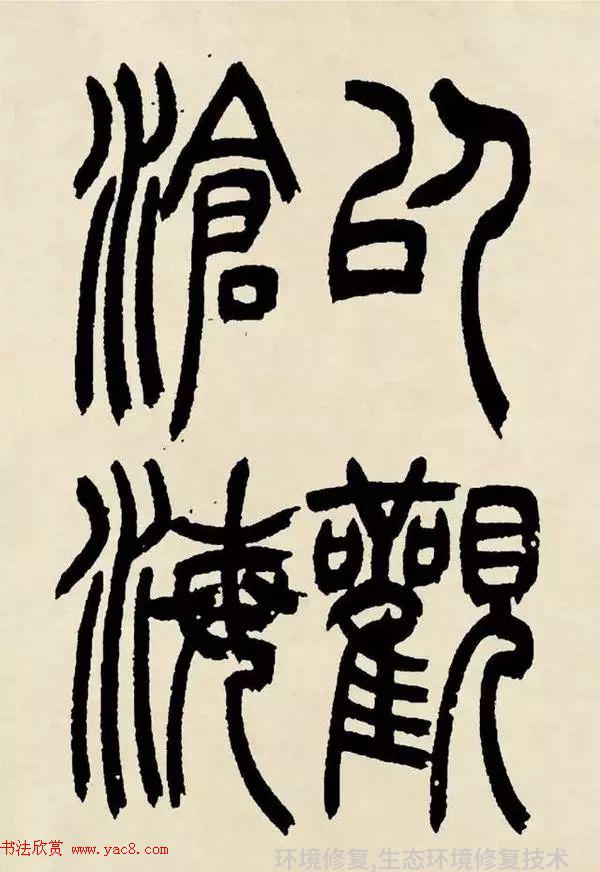 以觀
滄海
书法欣赏
www.yac8.com
环境修复,生态环境修复技术